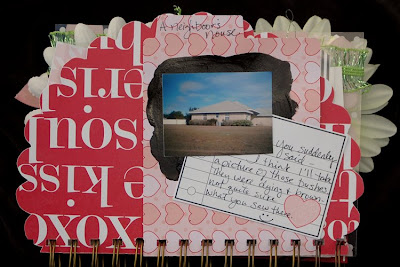 A neighbor's
house
You suddenly
said -
I think I'll take
a picture of those bushes.
They were dying & brown.
Not quite sure
what you saw there.
soul
kiss
xoxo